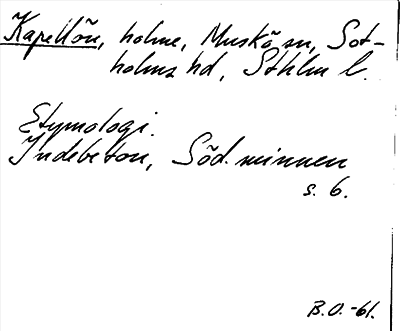 Kapellön, holme, Muskö sn, Sot-
holms hd, Sthlm l.
Etymologi.
Indebetou, Söd. minnen
s. 6.
B.O.-61.